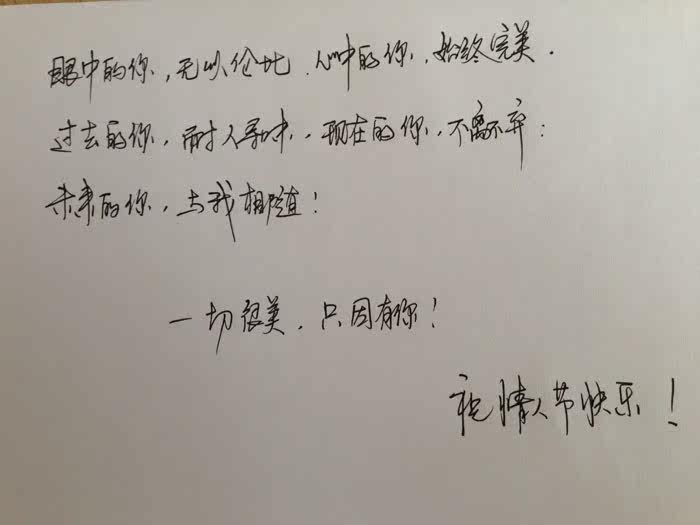 眼中的你,无以伦比.心中的你,始终完美.
过去的你,耐人寻味,现在的你,不离不弃:
未来的你,与我相随!
一切很美,只因有你!
祝情人节快乐!